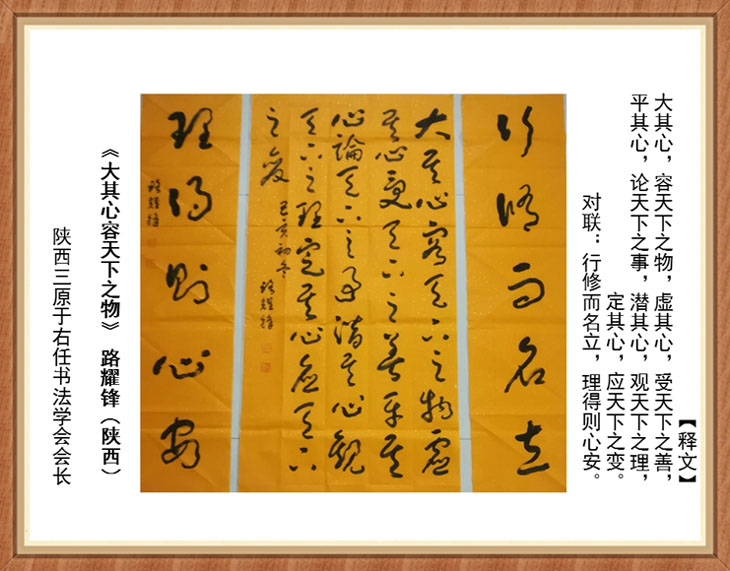 【释文】
大其心，容天下之物，虚其心，受天下之善，
平其心，论天下之事，潜其心，观天下之理，
定其心，应天下之变。
对联：行修而名立，理得则心安。
行修而名立
大其心容天下之物虚
其心受天下之善平其
心論天下之事潜其心観
天下之理定其心应天下
之变
己亥初冬
路耀鋒
理得则心安
路耀鋒
《大其心容天下之物》 路耀锋（陕西）
陕西三原于右任书法学会会长